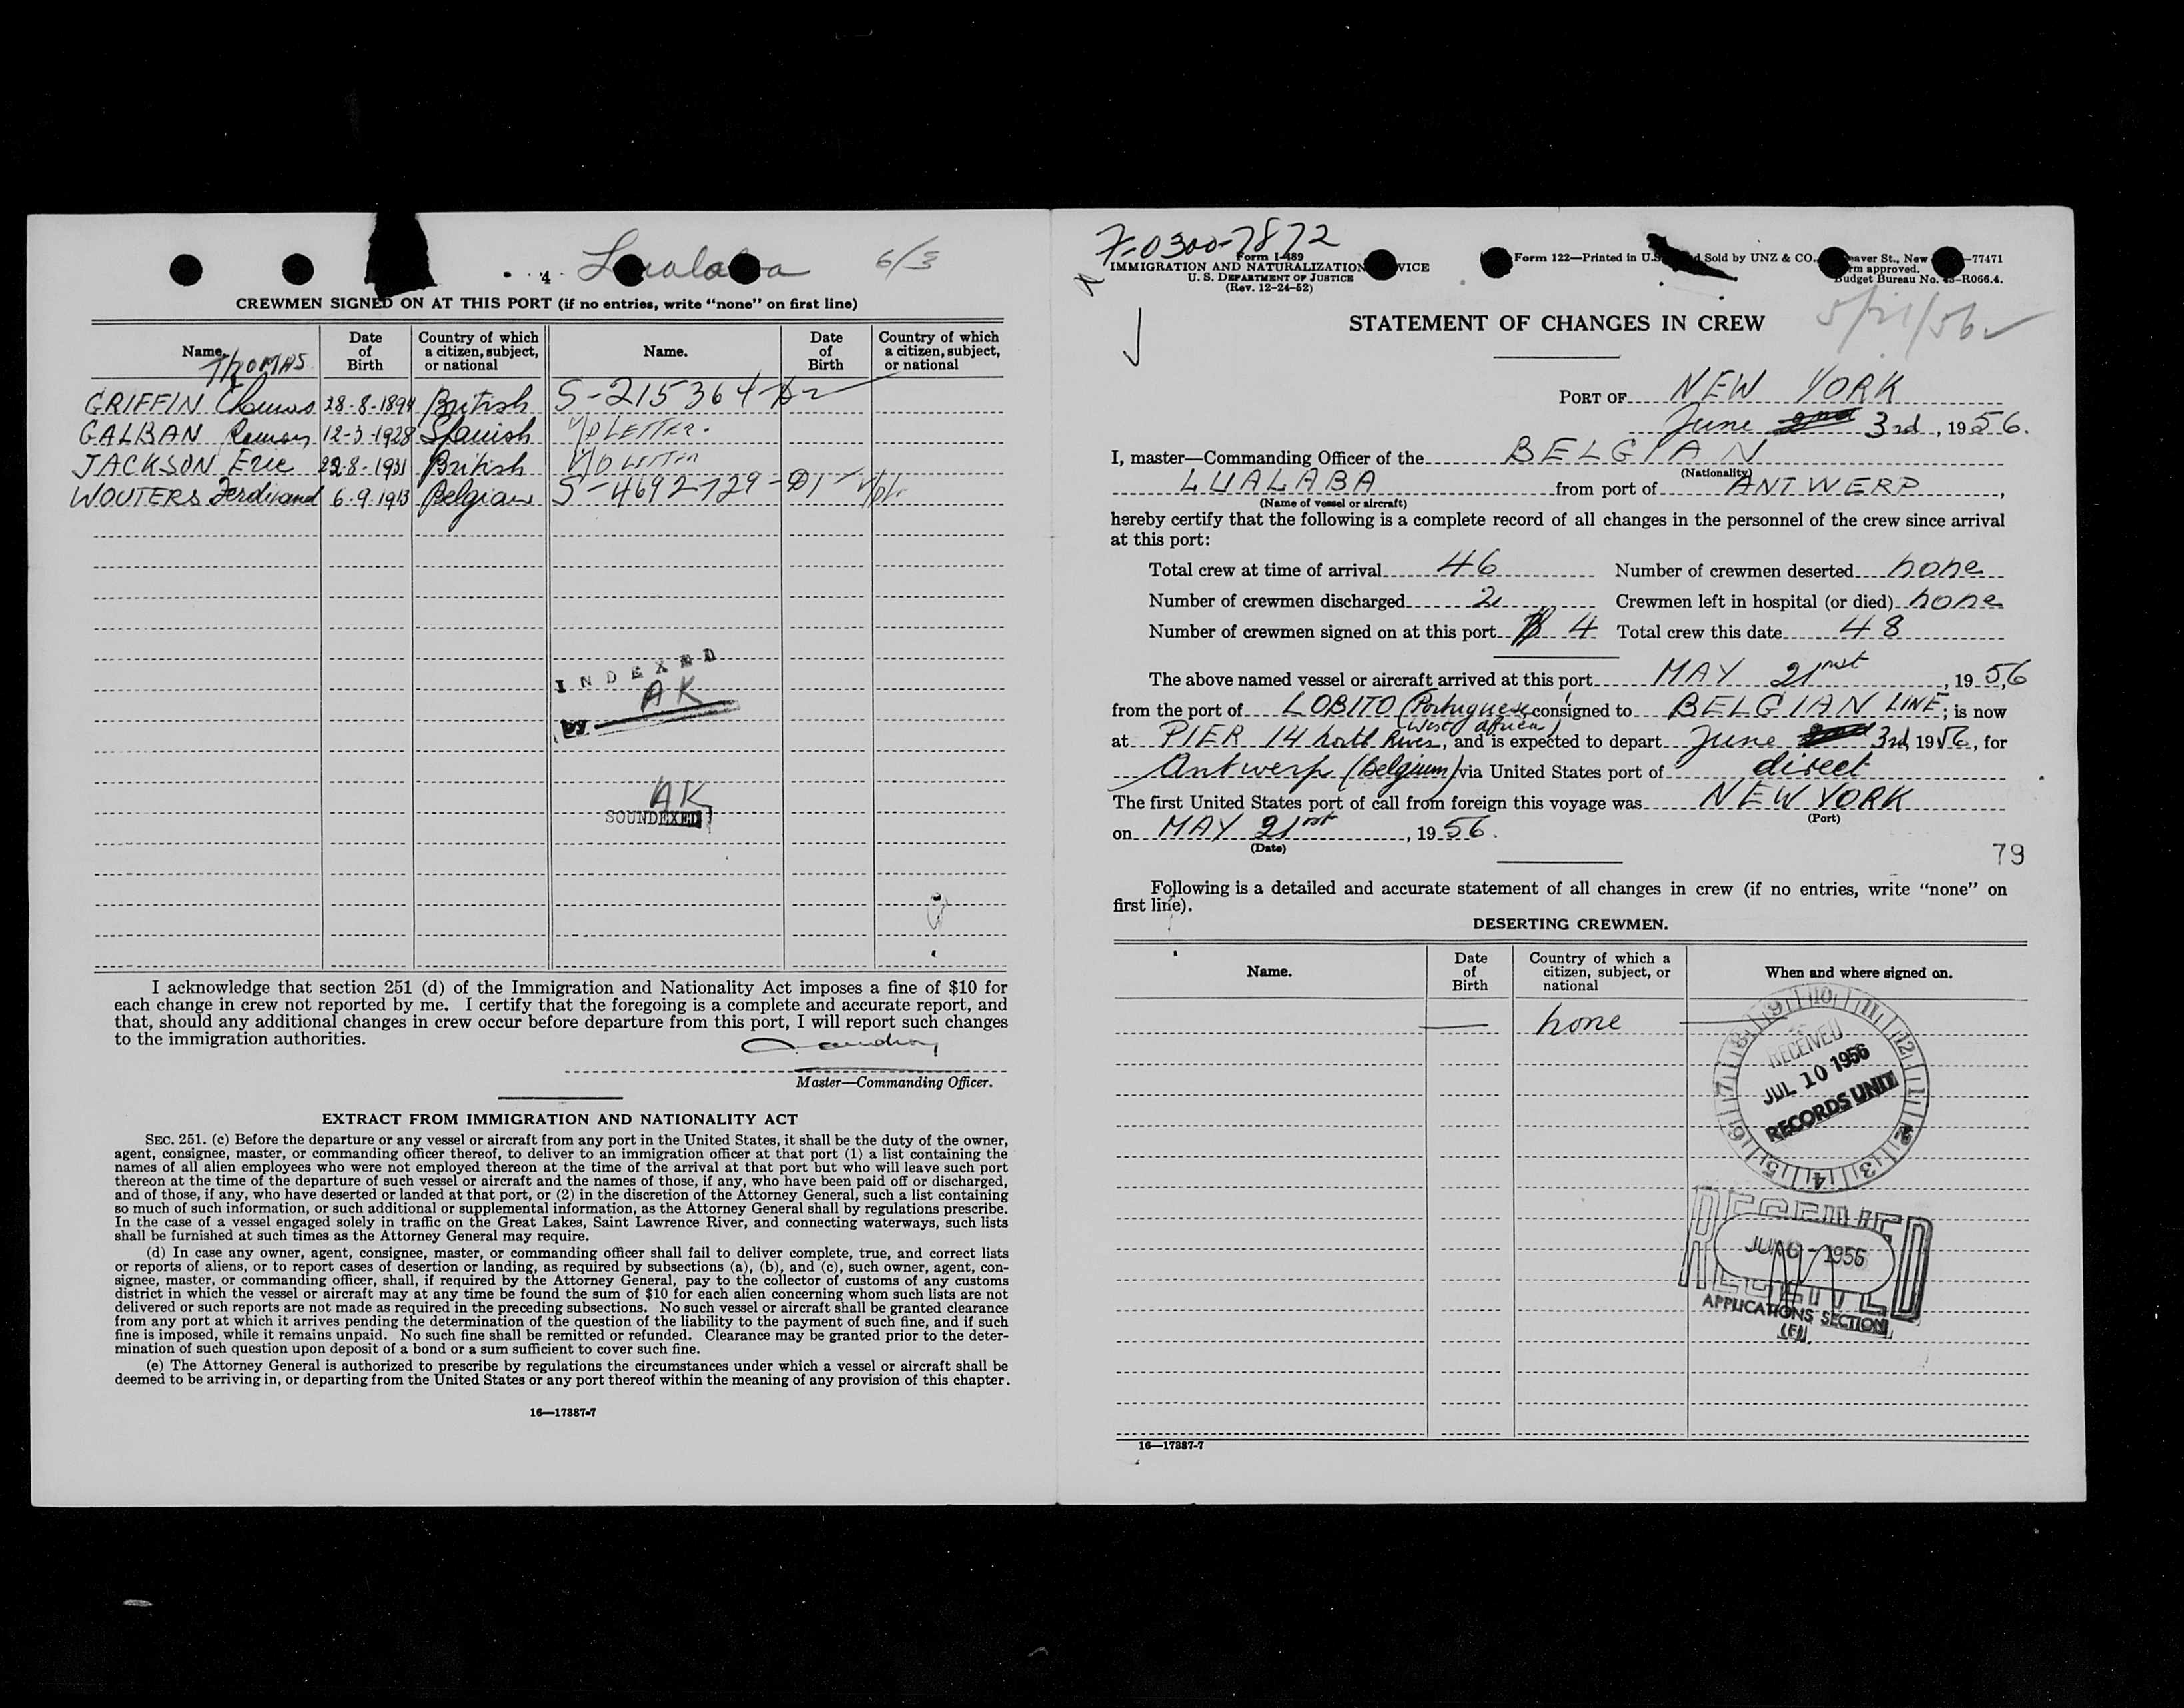 4 Lualaba 6/3
CREWMEN SIGNED ON AT THIS PORT (if no entries, write “none” on first line)
Name. Date of Birth Country of which a citizen, subject, or national Name. Date of Birth Country of which a citizen, subject, or national
Thomas
GRIFFIN Thomas 28-8-1894 British S-215364
GALBAN Ramon 12-3-1928 Spanish LETTER.
JACKSON Eric 22-8-1931 British LETTER
WOUTERS Ferdinand 6-9-1913 Belgian S-4692729
INDEXED
by AK
AK
SOUNDEXED
I acknowledge that section 251 (d) of the Immigration and Nationality Act imposes a fine of $10 for
each change in crew not reported by me. I certify that the foregoing is a complete and accurate report, and
that, should any additional changes in crew occur before departure from this port, I will report such changes
to the immigration authorities.
Master—Commanding Officer.
EXTRACT FROM IMMIGRATION AND NATIONALITY ACT
SEC. 251. (c) Before the departure or any vessel or aircraft from any port in the United States, it shall be the duty of the owner,
agent, consignee, master, or commanding officer thereof, to deliver to an immigration officer at that port (1) a list containing the
names of all alien employees who were not employed thereon at the time of the arrival at that port but who will leave such port
thereon at the time of the departure of such vessel or aircraft and the names of those, if any, who have been paid off or discharged,
and of those, if any, who have deserted or landed at that port, or (2) in the discretion of the Attorney General, such a list containing
so much of such information, or such additional or supplemental information, as the Attorney General shall by regulations prescribe.
In the case of a vessel engaged solely in traffic on the Great Lakes, Saint Lawrence River, and connecting waterways, such lists
shall be furnished at such times as the Attorney General may require.
(d) In case any owner, agent, consignee, master, or commanding officer shall fail to deliver complete, true, and correct lists
or reports of aliens, or to report cases of desertion or landing, as required by subsections (a), (b), and (c), such owner, agent, con-
signee, master, or commanding officer, shall, if required by the Attorney General, pay to the collector of customs of any customs
district in which the vessel or aircraft may at any time be found the sum of $10 for each alien concerning whom such lists are not
delivered or such reports are not made as required in the preceding subsections. No such vessel or aircraft shall be granted clearance
from any port at which it arrives pending the determination of the question of the liability to the payment of such fine, and if such
fine is imposed, while it remains unpaid. No such fine shall be remitted or refunded. Clearance may be granted prior to the deter-
mination of such question upon deposit of a bond or a sum sufficient to cover such fine.
(e) The Attorney General is authorized to prescribe by regulations the circumstances under which a vessel or aircraft shall be
deemed to be arriving in, or departing from the United States or any port thereof within the meaning of any provision of this chapter.
16—17387-7
7-0300-7872
Form I-489
IMMIGRATION AND NATURALIZATION VICE
U. S. DEPARTMENT OF JUSTICE
(Rev. 12-24-52)
Form 122—Printed in U.S. Sold by UNZ & CO., eaver St., New —77471
rm approved.
Budget Bureau No. 43-R066.4.
5/21/56
STATEMENT OF CHANGES IN CREW
PORT OF NEW YORK
June 3rd, 1956.
I, master—Commanding Officer of the BELGIAN
(Nationality)
LUALABA from port of ANTWERP,
(Name of vessel or aircraft)
hereby certify that the following is a complete record of all changes in the personnel of the crew since arrival
at this port:
Total crew at time of arrival 46 Number of crewmen deserted none
Number of crewmen discharged 2 Crewmen left in hospital (or died) none
Number of crewmen signed on at this port 4 Total crew this date 48
The above named vessel or aircraft arrived at this port MAY 21st, 1956
from the port of LOBITO (Portuguese West Africa), consigned to BELGIAN LINE; is now
at PIER 14 North River, and is expected to depart June 3rd, 1956, for
Antwerp (Belgium) via United States port of direct
The first United States port of call from foreign this voyage was NEW YORK
(Port)
on MAY 21st, 1956.
(Date)
79
Following is a detailed and accurate statement of all changes in crew (if no entries, write “none” on
first line).
DESERTING CREWMEN.
Name. Date of Birth Country of which a citizen, subject, or national When and where signed on.
— none —
9 10 11 12 1 2 3 4 5 6 7 8
RECEIVED
JUL 10 1956
RECORDS UNIT
RECEIVED
1956
RECEIVED
APPLICATIONS SECTION
16—17387-7